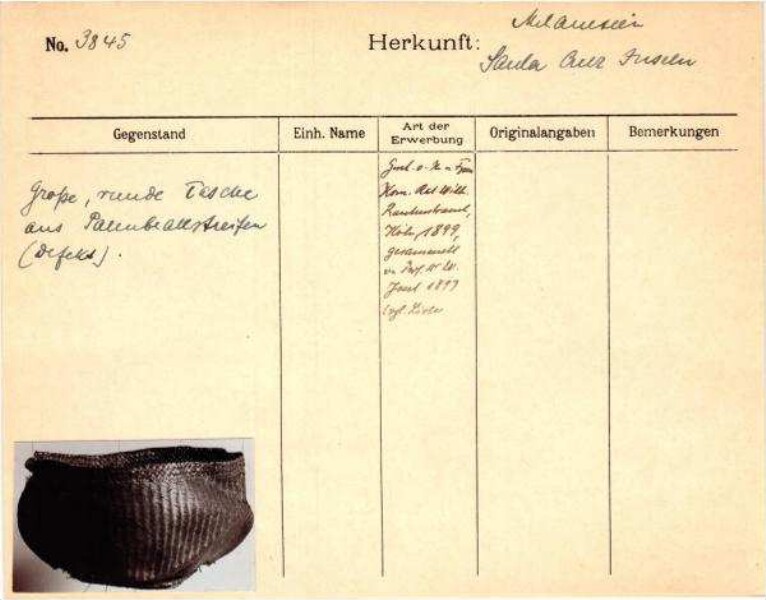 No. 3845
Herkunft:
Melanesien
Santa Cruz Inseln
Gegenstand
Einh. Name
Art der
Erwerbung
Originalangaben
Bemerkungen
Große, runde Tasche
aus Palmblattstreifen
(Defekt).
Gesch. v. H. u. Frau
Kom. Rat Wilh.
Rautenstrauch,
Köln, 1899,
gesammelt
v. Prof. Dr W.
Joest 1897
Vgl. Liste